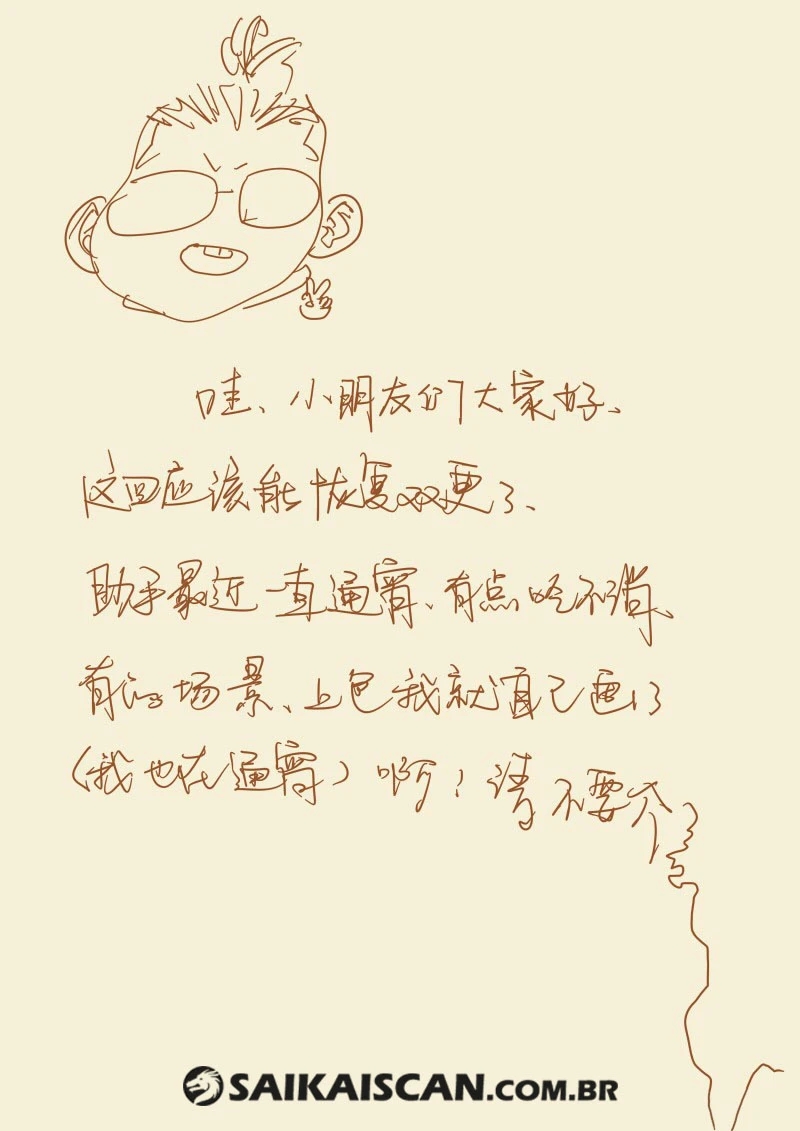 哇、小朋友们大家好、
这回应该能恢复双更了、
助手最近一直通宵、有点吃不消、
有的场景、上色我就自己画了
(我也在通宵)啊!请不要介
SAIKAISCAN.COM.BR